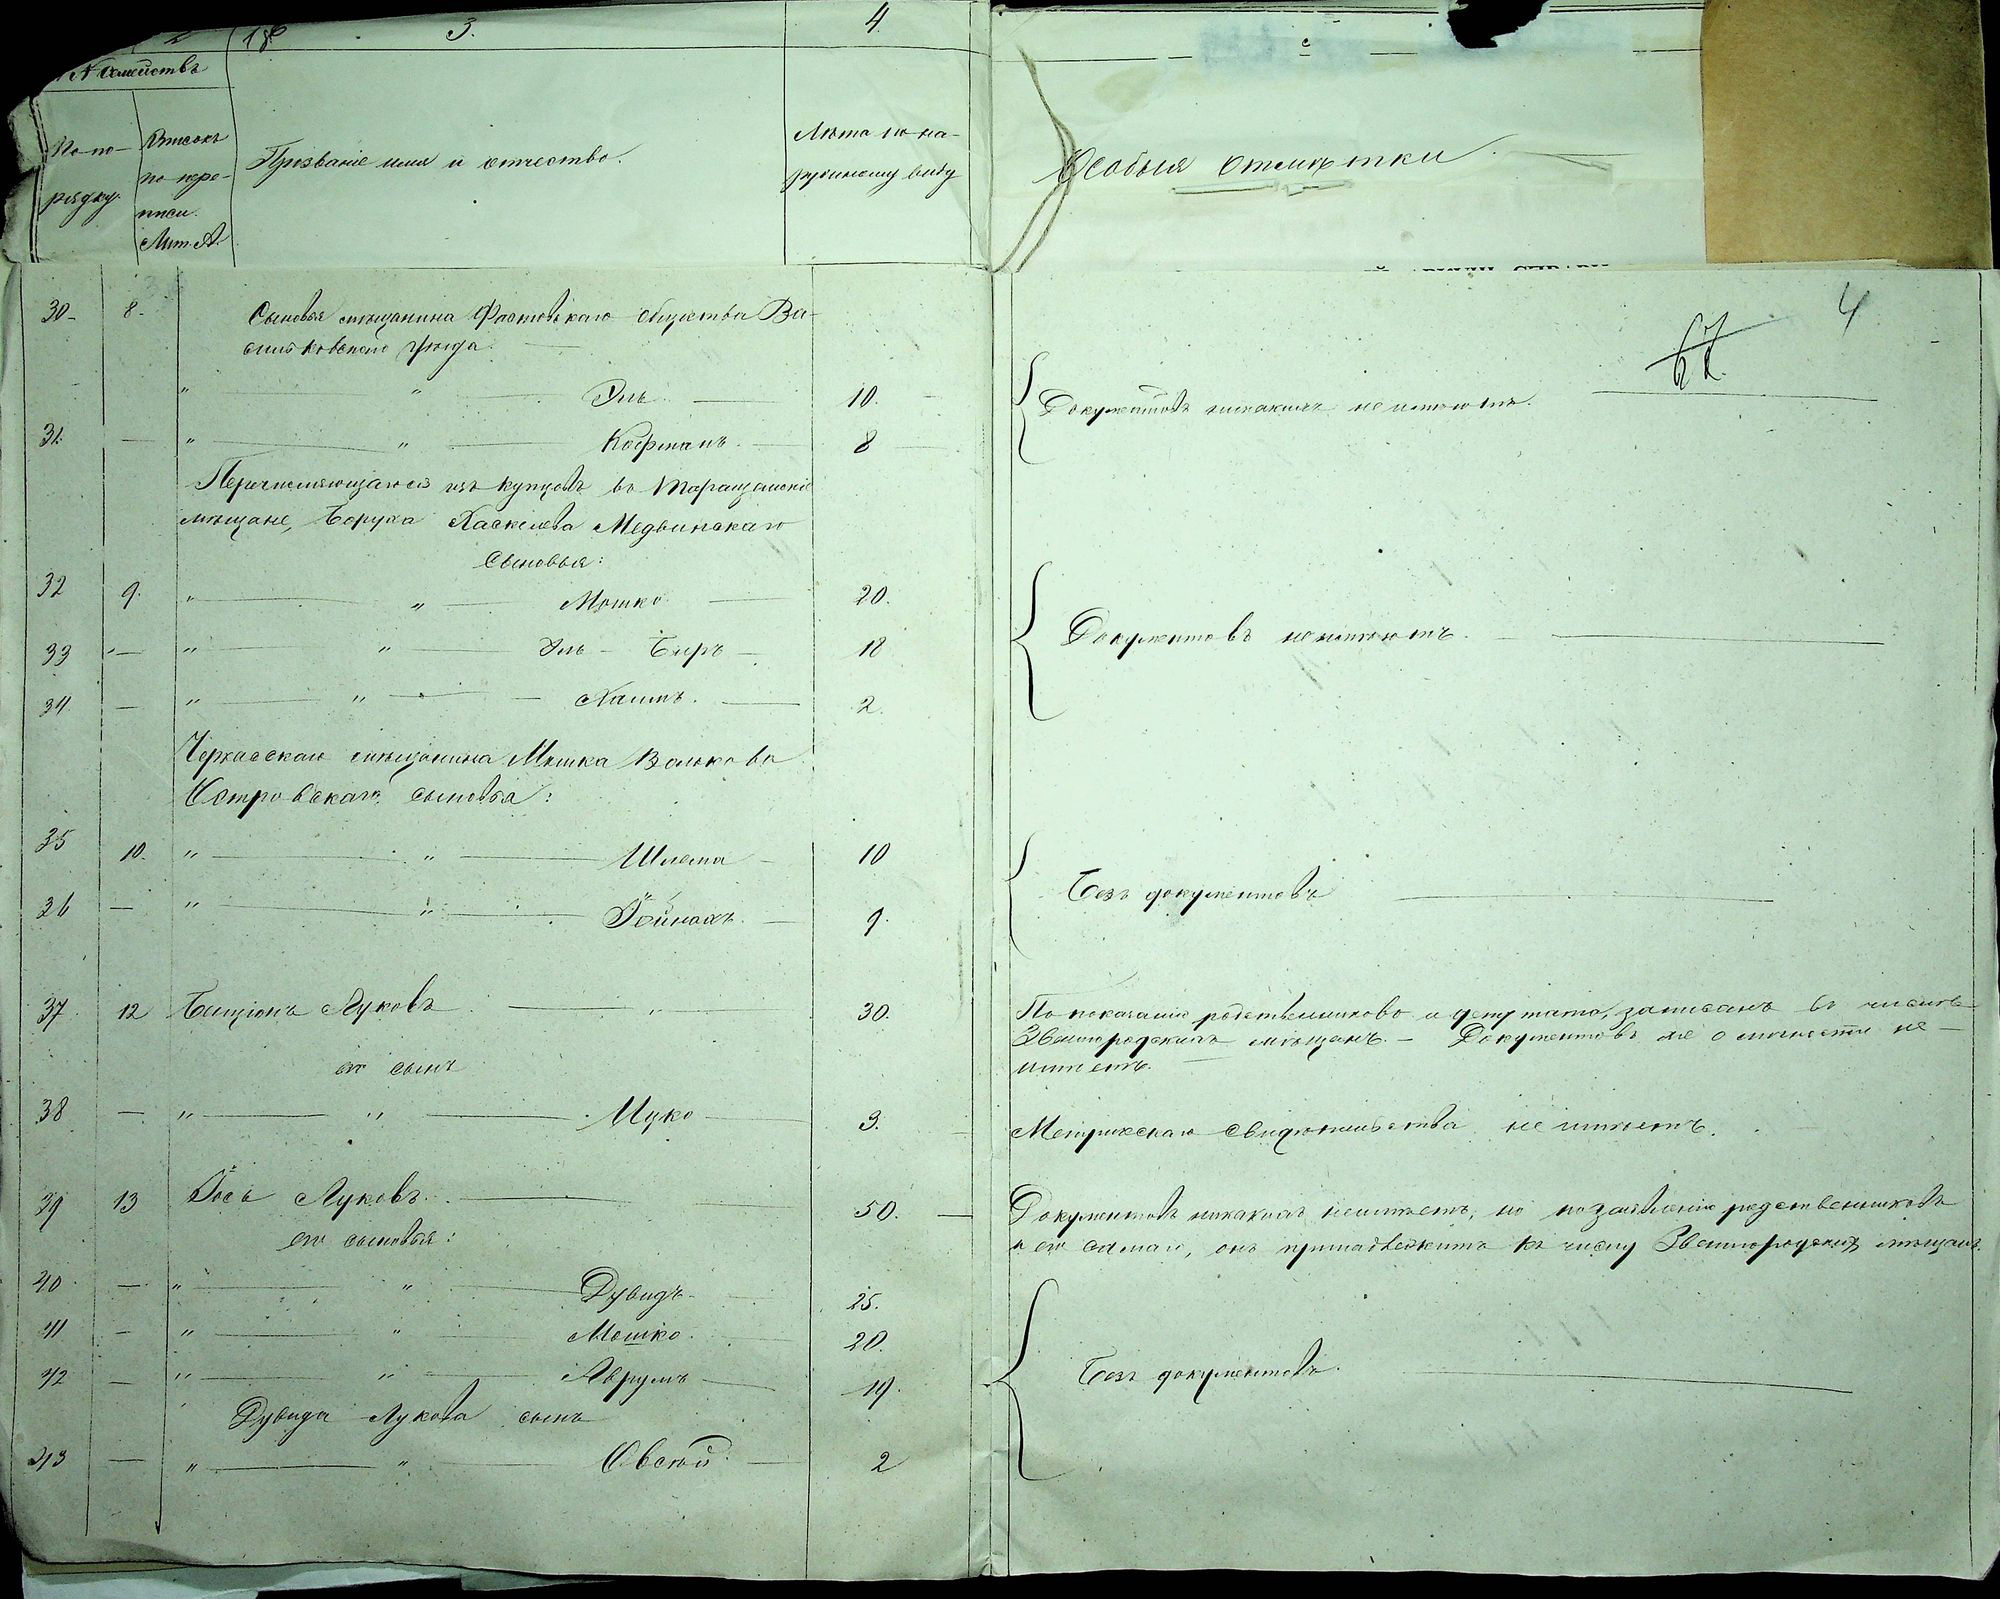 2 18 3. 4.
№ семействъ
По по-
рядку.
Вписокъ
по пере-
писи.
Лит. А.
Прозваніе имя и отчество.
Лѣта по на-
ружному виду
Особыя отмѣтки
4
67
30 8. Сыновья мѣщанина Фастовскаго общества Ва-
сильковскаго уѣзда.
" " Эль 10.
Документовъ никакихъ не имѣютъ.
31. — " " Кофманъ. 8
Перечисляющагося изъ купцовъ въ Таращанскіе
мѣщане, Боруха Хаскелева Медвинскаго
сыновья:
32 9. " " Мошко 20.
33 " — " " Эль - Беръ — 18
Документовъ не имѣютъ.
34 — " " Хаимъ. 2.
Черкасскаго мѣщанина Мошка Волькова
Островскаго сыновья:
35 10. " " Шлема 10
36 — " " Іойнахъ. 9.
Безъ документовъ
37. 12 Бенціонъ Луковъ " 30.
По показанію родственниковъ и депутата, записанъ въ числѣ
Звенигородскихъ мѣщанъ. — Документовъ же о личности не
имѣетъ.
его сынъ
38 — " " Ицко 3.
Метрическаго свидѣтельства не имѣетъ.
39 13 Іось Луковъ. 50. —
Документовъ никакихъ неимѣетъ, но по заявленію родственниковъ
и его самаго, онъ принадлежитъ къ числу Звенигородскихъ мѣщанъ.
его сыновья:
40 — " " Дувидъ 25.
41 — " " Мошко. 20.
42 — " " Аврумъ 19.
Безъ документовъ.
Дувида Лукова сынъ
43 — " " Овсѣй. 2